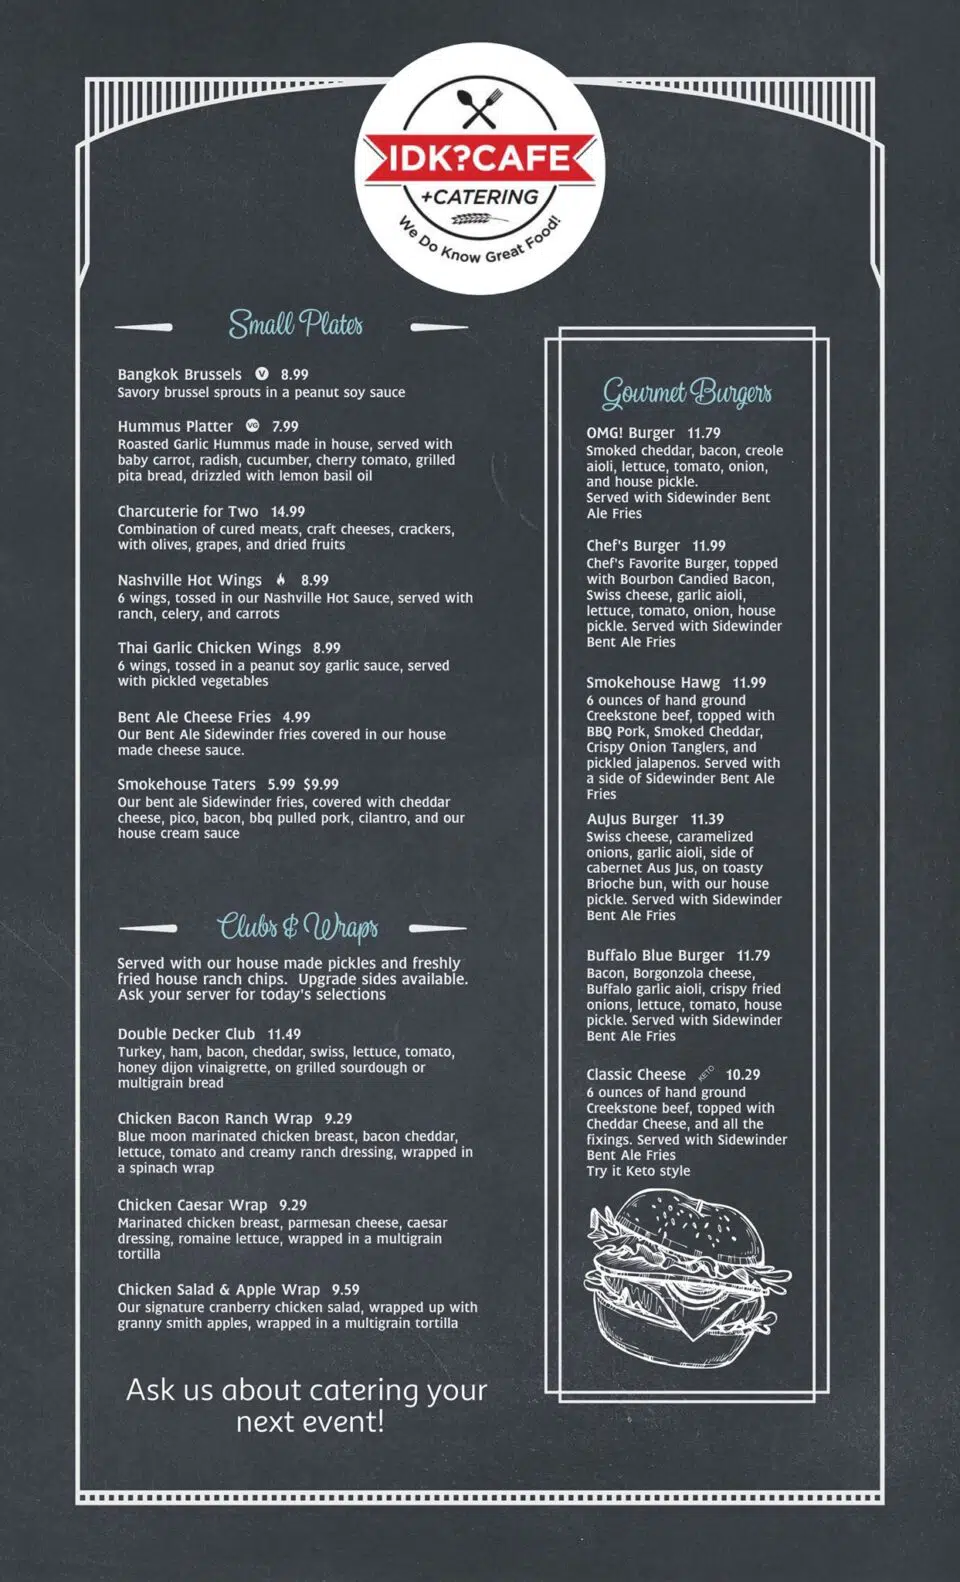 IDK?CAFE
+CATERING
We Do Know Great Food!
Small Plates
Bangkok Brussels V 8.99
Savory brussel sprouts in a peanut soy sauce
Hummus Platter VG 7.99
Roasted Garlic Hummus made in house, served with
baby carrot, radish, cucumber, cherry tomato, grilled
pita bread, drizzled with lemon basil oil
Charcuterie for Two 14.99
Combination of cured meats, craft cheeses, crackers,
with olives, grapes, and dried fruits
Nashville Hot Wings 8.99
6 wings, tossed in our Nashville Hot Sauce, served with
ranch, celery, and carrots
Thai Garlic Chicken Wings 8.99
6 wings, tossed in a peanut soy garlic sauce, served
with pickled vegetables
Bent Ale Cheese Fries 4.99
Our Bent Ale Sidewinder fries covered in our house
made cheese sauce.
Smokehouse Taters 5.99 $9.99
Our bent ale Sidewinder fries, covered with cheddar
cheese, pico, bacon, bbq pulled pork, cilantro, and our
house cream sauce
Clubs & Wraps
Served with our house made pickles and freshly
fried house ranch chips. Upgrade sides available.
Ask your server for today's selections
Double Decker Club 11.49
Turkey, ham, bacon, cheddar, swiss, lettuce, tomato,
honey dijon vinaigrette, on grilled sourdough or
multigrain bread
Chicken Bacon Ranch Wrap 9.29
Blue moon marinated chicken breast, bacon cheddar,
lettuce, tomato and creamy ranch dressing, wrapped in
a spinach wrap
Chicken Caesar Wrap 9.29
Marinated chicken breast, parmesan cheese, caesar
dressing, romaine lettuce, wrapped in a multigrain
tortilla
Chicken Salad & Apple Wrap 9.59
Our signature cranberry chicken salad, wrapped up with
granny smith apples, wrapped in a multigrain tortilla
Ask us about catering your
next event!
Gourmet Burgers
OMG! Burger 11.79
Smoked cheddar, bacon, creole
aioli, lettuce, tomato, onion,
and house pickle.
Served with Sidewinder Bent
Ale Fries
Chef's Burger 11.99
Chef's Favorite Burger, topped
with Bourbon Candied Bacon,
Swiss cheese, garlic aioli,
lettuce, tomato, onion, house
pickle. Served with Sidewinder
Bent Ale Fries
Smokehouse Hawg 11.99
6 ounces of hand ground
Creekstone beef, topped with
BBQ Pork, Smoked Cheddar,
Crispy Onion Tanglers, and
pickled jalapenos. Served with
a side of Sidewinder Bent Ale
Fries
AuJus Burger 11.39
Swiss cheese, caramelized
onions, garlic aioli, side of
cabernet Aus Jus, on toasty
Brioche bun, with our house
pickle. Served with Sidewinder
Bent Ale Fries
Buffalo Blue Burger 11.79
Bacon, Borgonzola cheese,
Buffalo garlic aioli, crispy fried
onions, lettuce, tomato, house
pickle. Served with Sidewinder
Bent Ale Fries
Classic Cheese KETO 10.29
6 ounces of hand ground
Creekstone beef, topped with
Cheddar Cheese, and all the
fixings. Served with Sidewinder
Bent Ale Fries
Try it Keto style